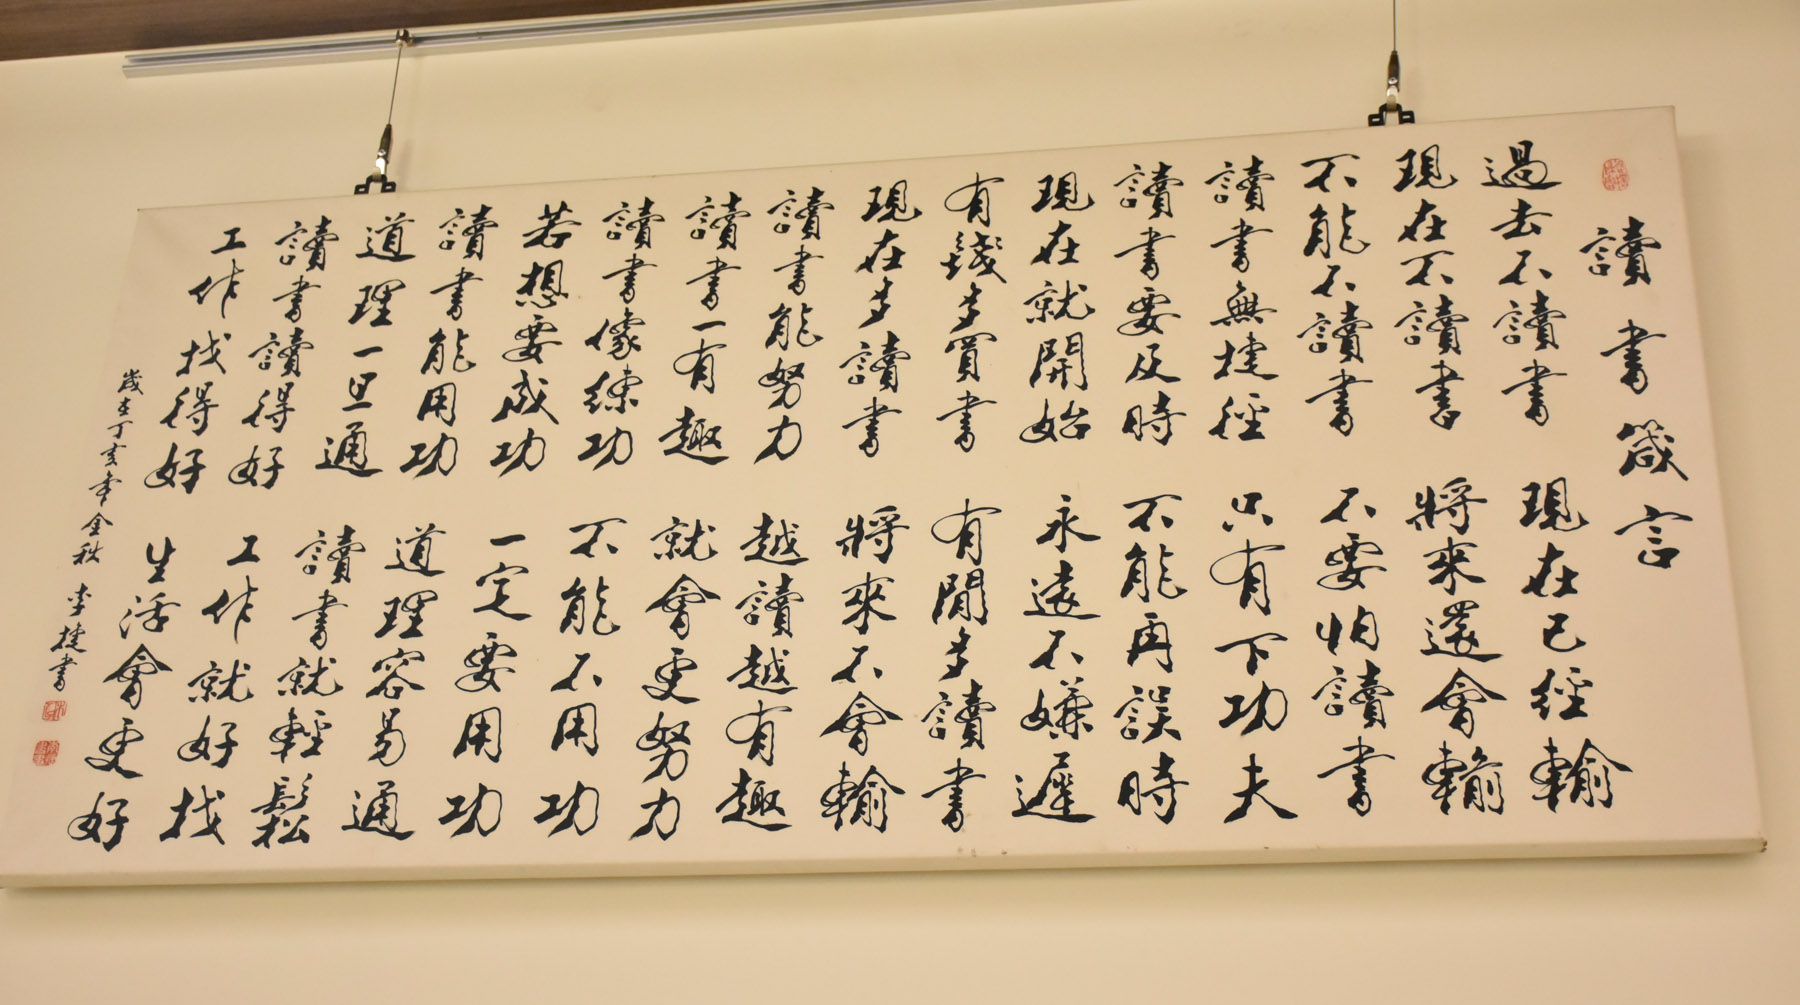 讀書箴言
過去不讀書 現在已經輸
現在不讀書 將來還會輸
不能不讀書 不要怕讀書
讀書無捷徑 只有下功夫
讀書要及時 不能再誤時
現在就開始 永遠不嫌遲
有錢多買書 有閒多讀書
現在多讀書 將來不會輸
讀書能努力 越讀越有趣
讀書一有趣 就會更努力
讀書像練功 不能不用功
若想要成功 一定要用功
讀書能用功 道理容易通
道理一旦通 讀書就輕鬆
讀書讀得好 工作就好找
工作找得好 生活會更好
歲在丁亥年金秋 李捷書